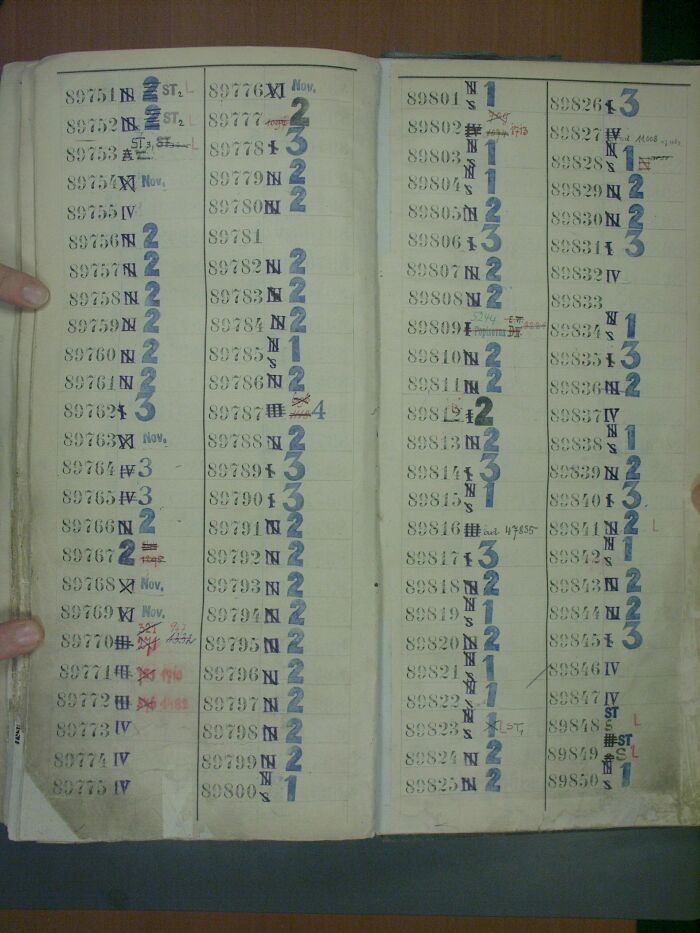 89751 N 2 ST₂ L
89752 N 2 ST₂ L
89753 ST₃
89754 XI Nov.
89755 IV
89756 N 2
89757 N 2
89758 N 2
89759 N 2
89760 N 2
89761 N 2
89762 I 3
89763 XI Nov.
89764 IV 3
89765 IV 3
89766 N 2
89767 2
89768 XI Nov.
89769 XI Nov.
89770 III 321
89771 III 1910
89772 III
89773 IV
89774 IV
89775 IV
89776 XI Nov.
89777 2
89778 I 3
89779 N 2
89780 N 2
89781
89782 N 2
89783 N 2
89784 N 2
89785 N S 1
89786 N 2
89787 III 4
89788 N 2
89789 I 3
89790 I 3
89791 N 2
89792 N 2
89793 N 2
89794 N 2
89795 N 2
89796 N 2
89797 N 2
89798 N 2
89799 N 2
89800 N S 1
89801 N S 1
89802 IV 1713
89803 N S 1
89804 N S 1
89805 N 2
89806 I 3
89807 N 2
89808 N 2
89809 I 5244
89810 N 2
89811 N 2
89812 I 2
89813 N 2
89814 I 3
89815 N S 1
89816 III ad 47855
89817 I 3
89818 N 2
89819 N S 1
89820 N 2
89821 N S 1
89822 N S 1
89823 N S 1 L ST₁
89824 N 2
89825 N 2
89826 I 3
89827 IV ad 11008
89828 N S 1
89829 N 2
89830 N 2
89831 I 3
89832 IV
89833
89834 N S 1
89835 I 3
89836 N 2
89837 IV
89838 N S 1
89839 N 2
89840 I 3
89841 N 2 L
89842 N S 1
89843 N 2
89844 N 2
89845 I 3
89846 IV
89847 IV
89848 ST S L
89849 III ST S L
89850 N S 1